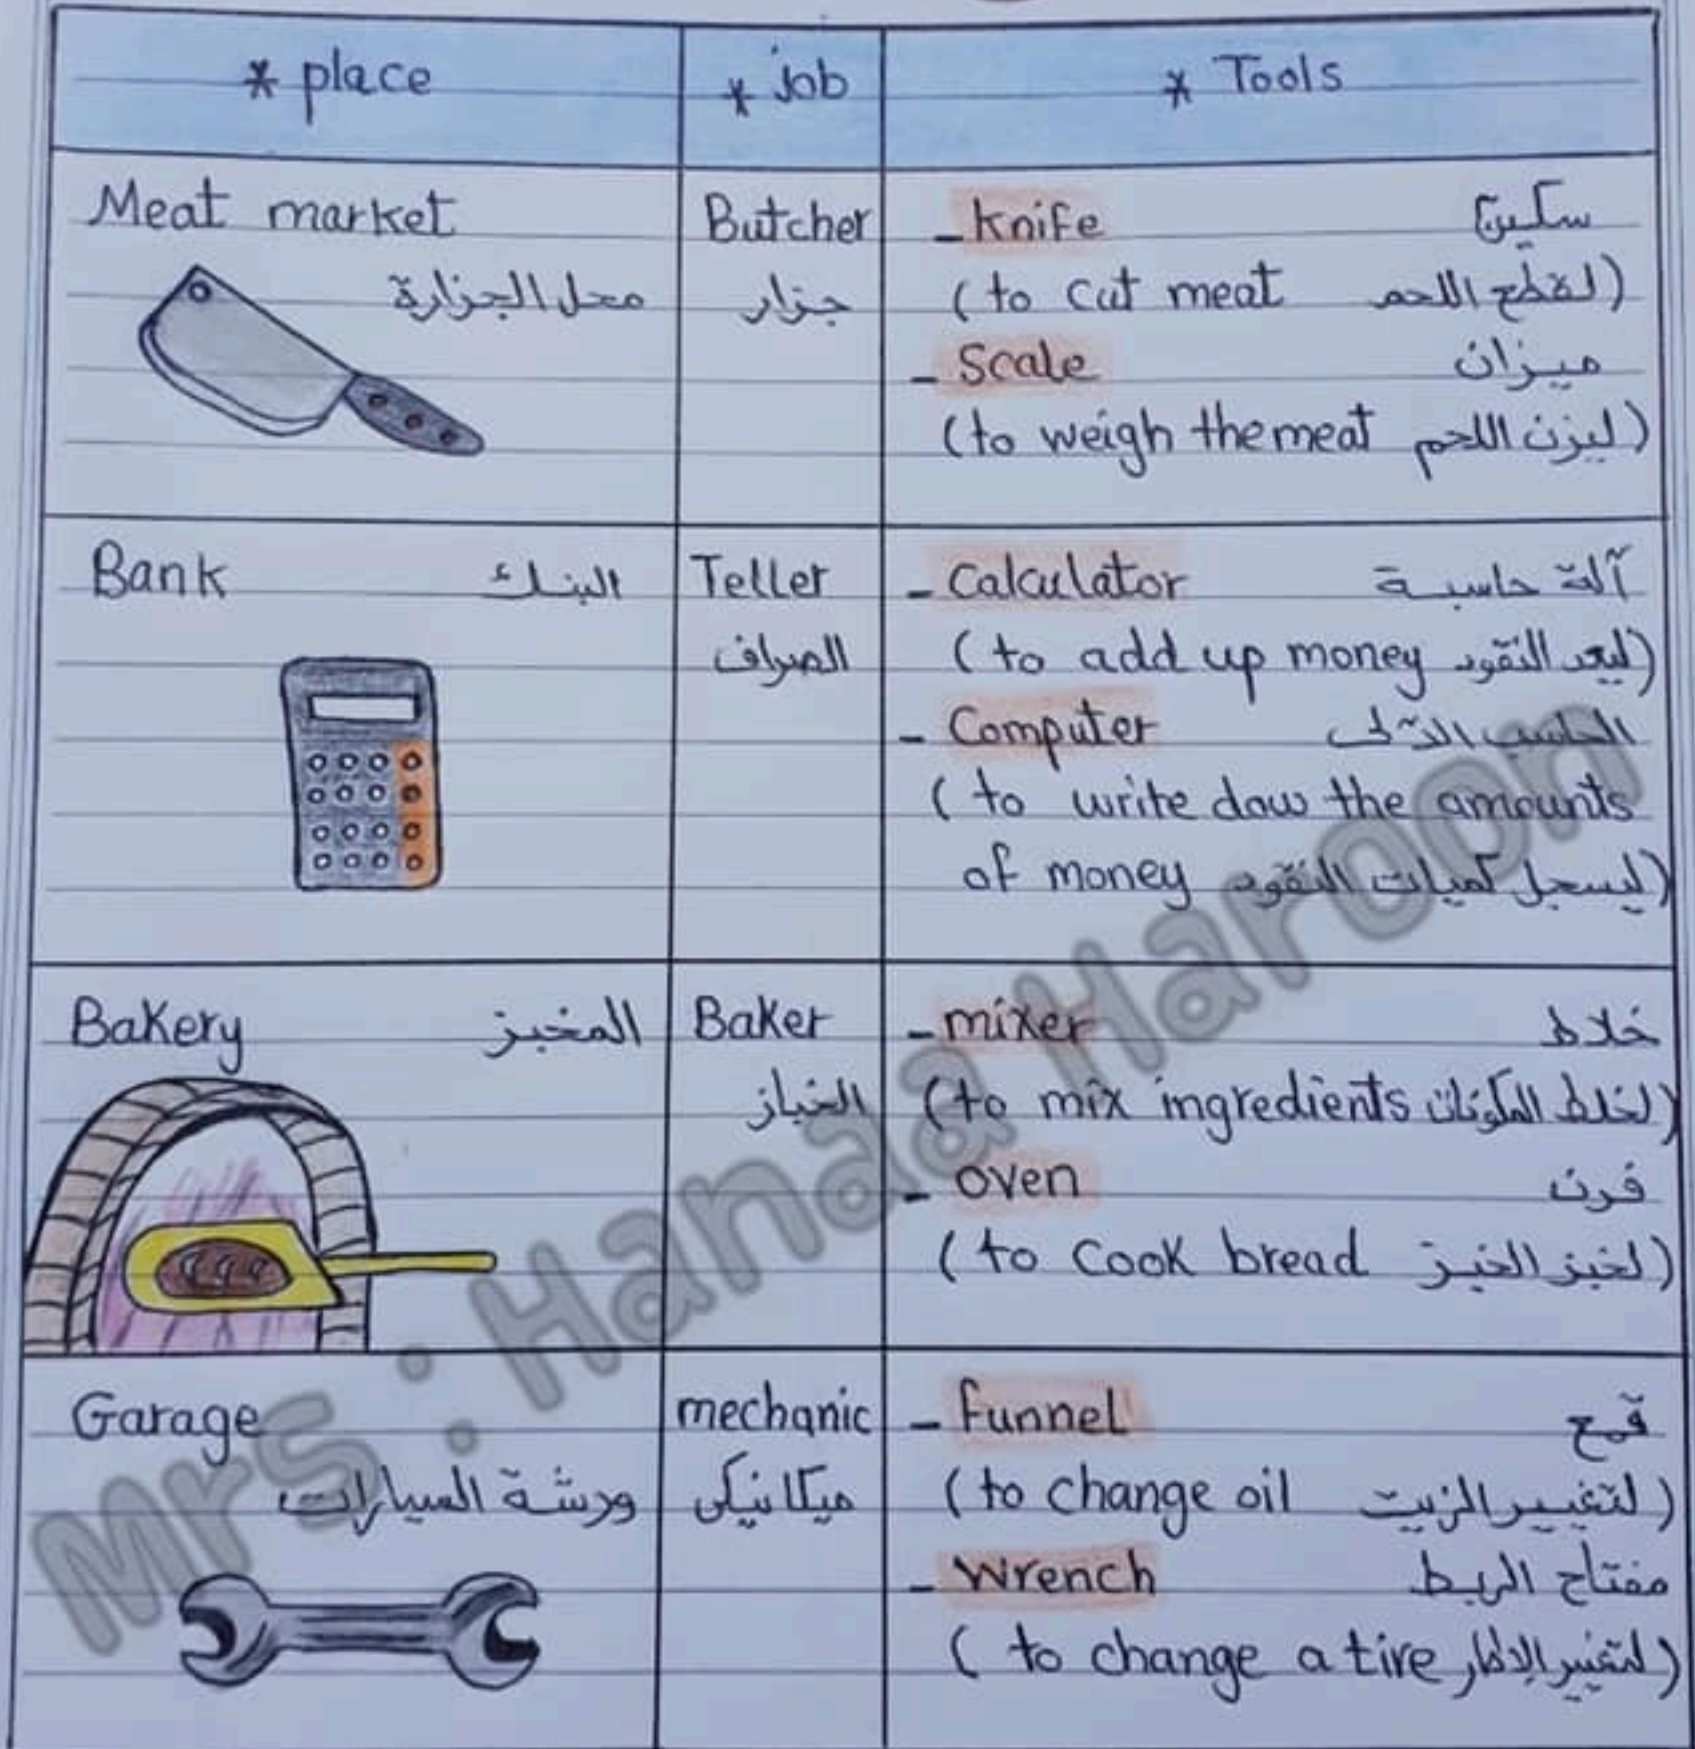 * place
* job
* Tools
Meat market
محل الجزارة
Butcher
جزار
- Knife سكين
(to cut meat لقطع اللحم)
- Scale ميزان
(to weigh the meat ليزن اللحم)
Bank البنك
Teller
الصراف
- Calculator آلة حاسبة
(to add up money ليعد النقود)
- Computer الحاسب الآلى
(to write daw the amounts
of money ليسجل كميات النقود)
Bakery المخبز
Baker
الخباز
- mixer خلاط
(to mix ingredients لخلط المكونات)
- oven فرن
(to cook bread لخبز الخبز)
Garage
ورشة السيارات
mechanic
ميكانيكى
- Funnel قمع
(to change oil لتغيير الزيت)
- Wrench مفتاح الربط
(to change a tire لتغيير الإطار)
Mrs : Hanaa Haroon